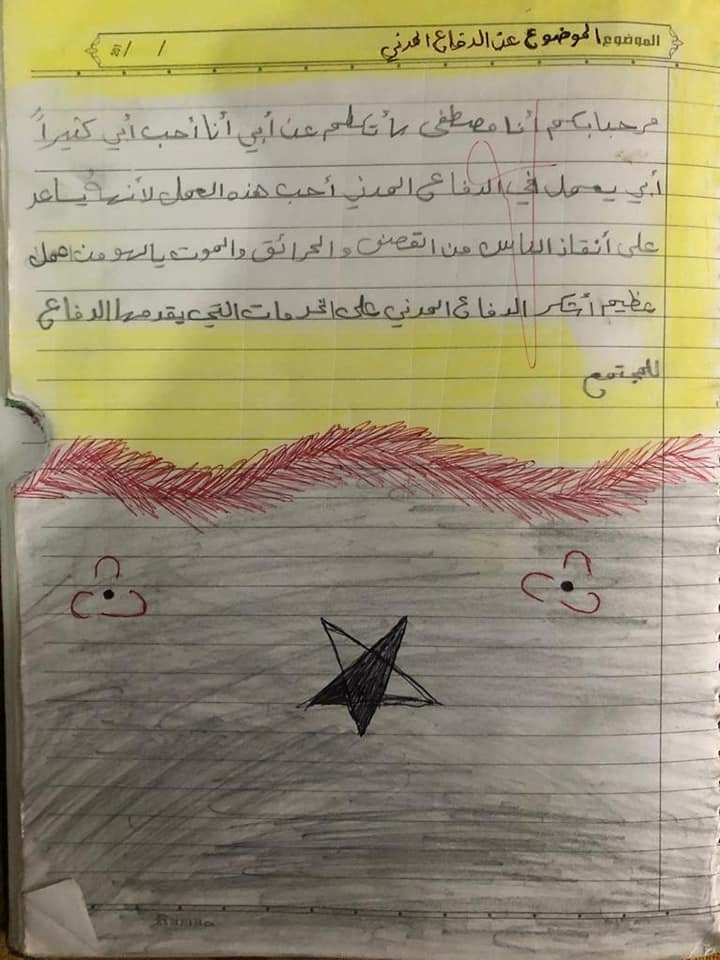 الموضوع الموضوع عن الدفاع المدني
مرحبا بكم أنا مصطفى سأتكلم عن أبي أنا أحب أبي كثيراً
أبي يعمل في الدفاع المدني أحب هذه العمل لأنهُ يساعد
على أنقاذ الناس من القصف والحرائق والموت يالهو من عمل
عظيم أشكر الدفاع المدني على الخدمات التي يقدمها الدفاع
للمجتمع